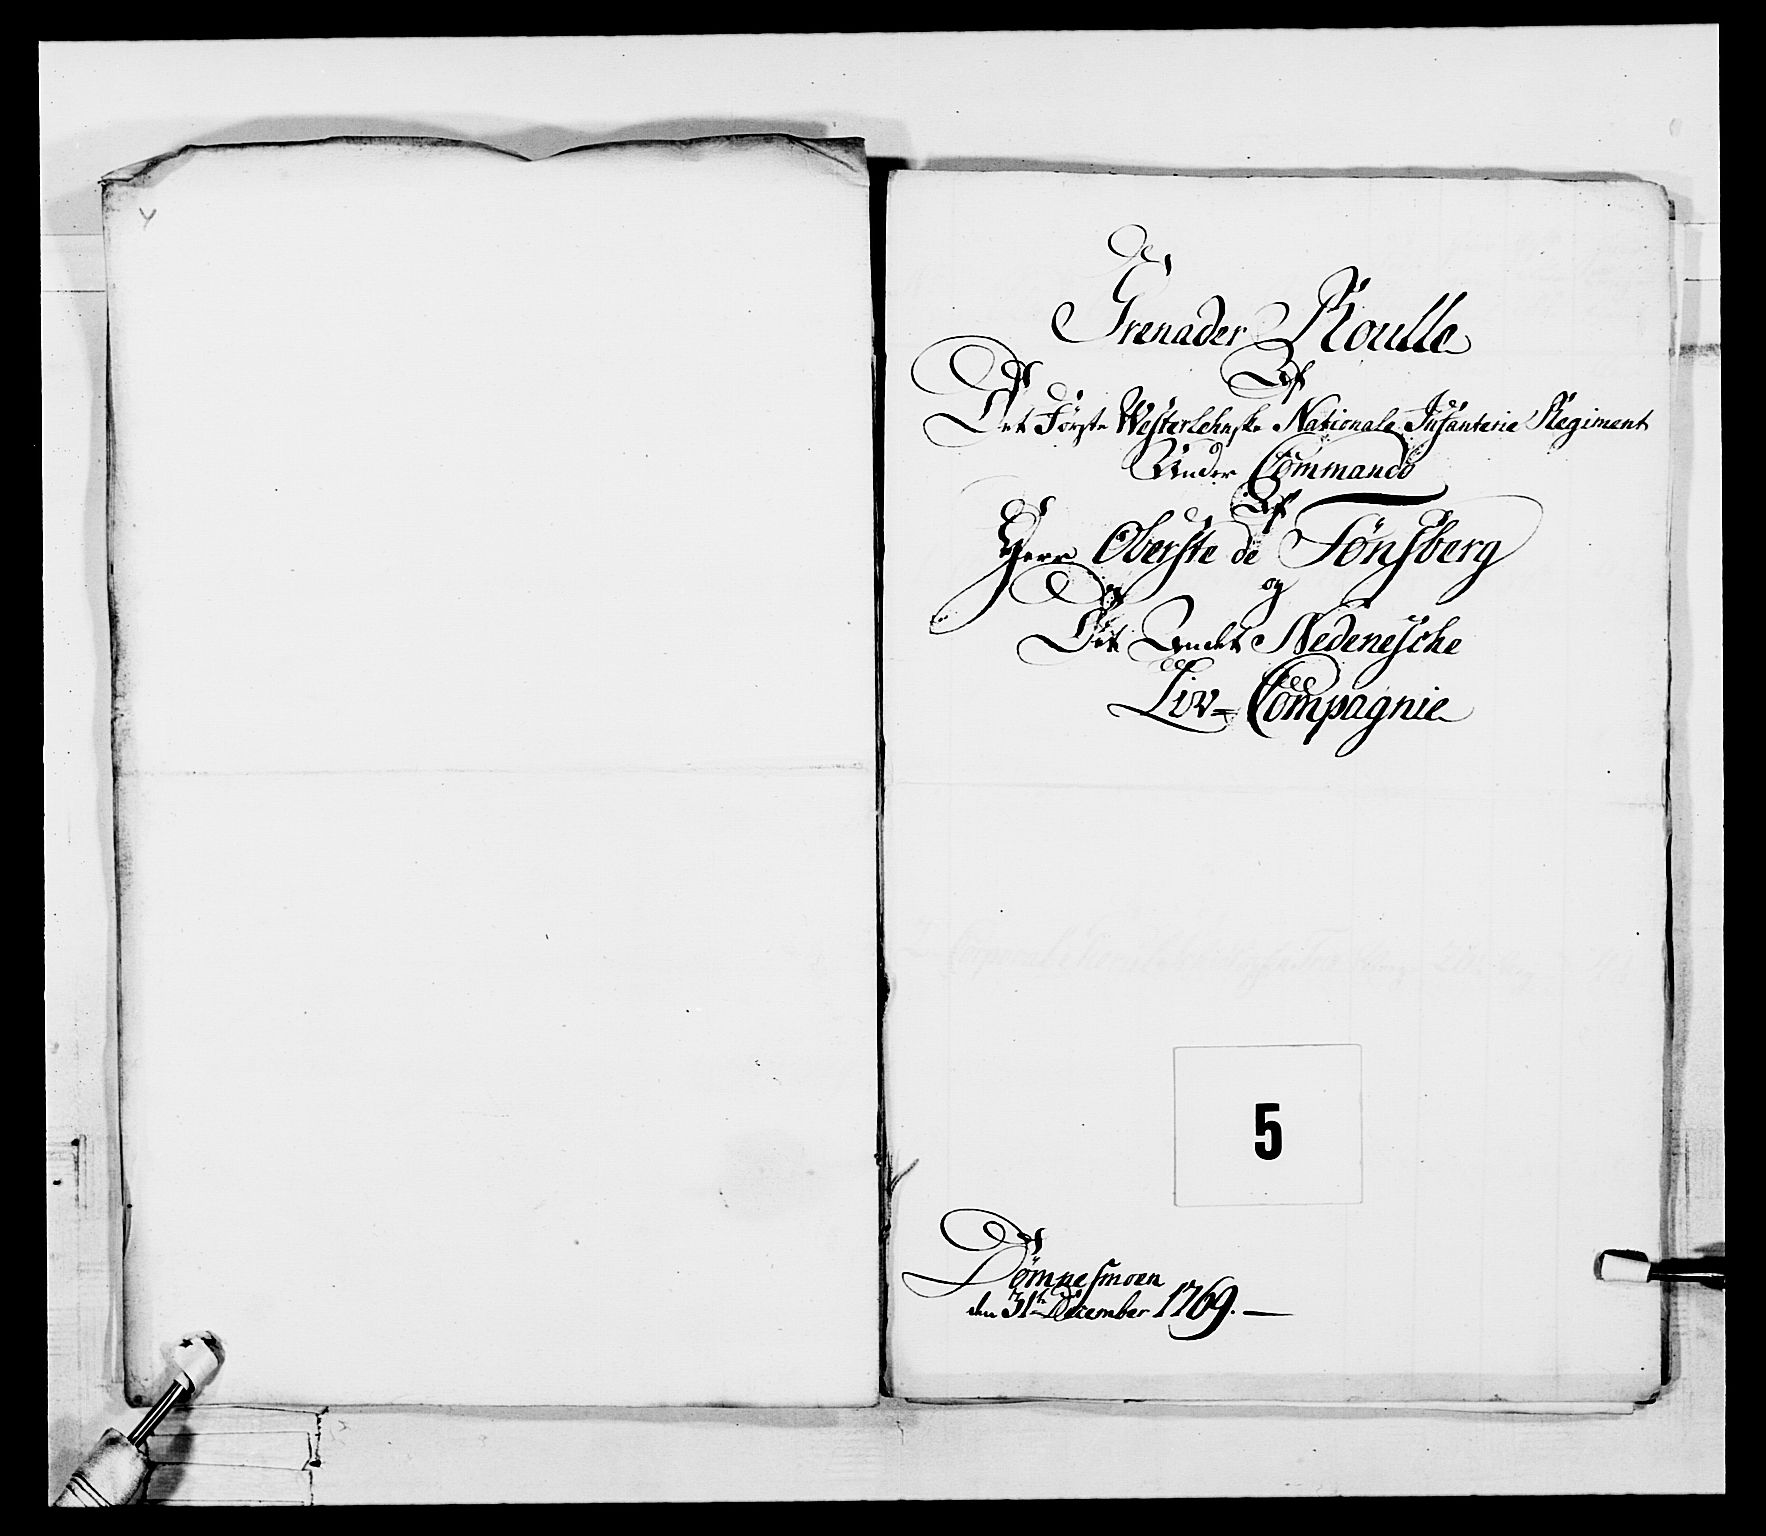 Grenader Roulle
Af
Det Første Westerlehnske Nationale Infanterie Regiment
Under Commando
Af
Herr Oberste de Tønsberg
og
Det Andet Nedenesche
Liv=Compagnie
5
Dømnesmoen
den 31te December 1769.